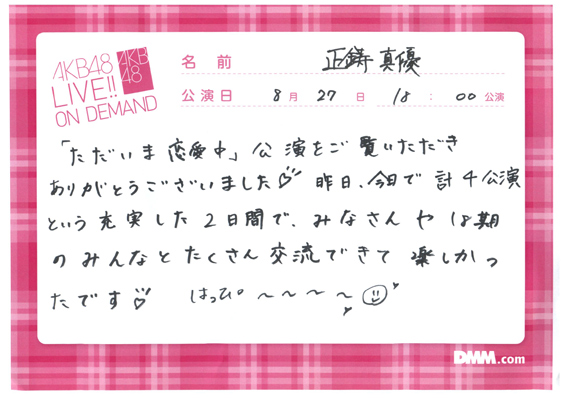 AKB48
LIVE!!
ON DEMAND
AKB
48
名前 正鋳真優
公演日 8月27日 18:00公演
「ただいま恋愛中」公演をご覧いただき
ありがとうございました♡ 昨日、今日で計4公演
という充実した2日間で、みなさんや18期
のみんなとたくさん交流できて楽しかっ
たです♡ はっぴ〜〜〜〜
DMM.com